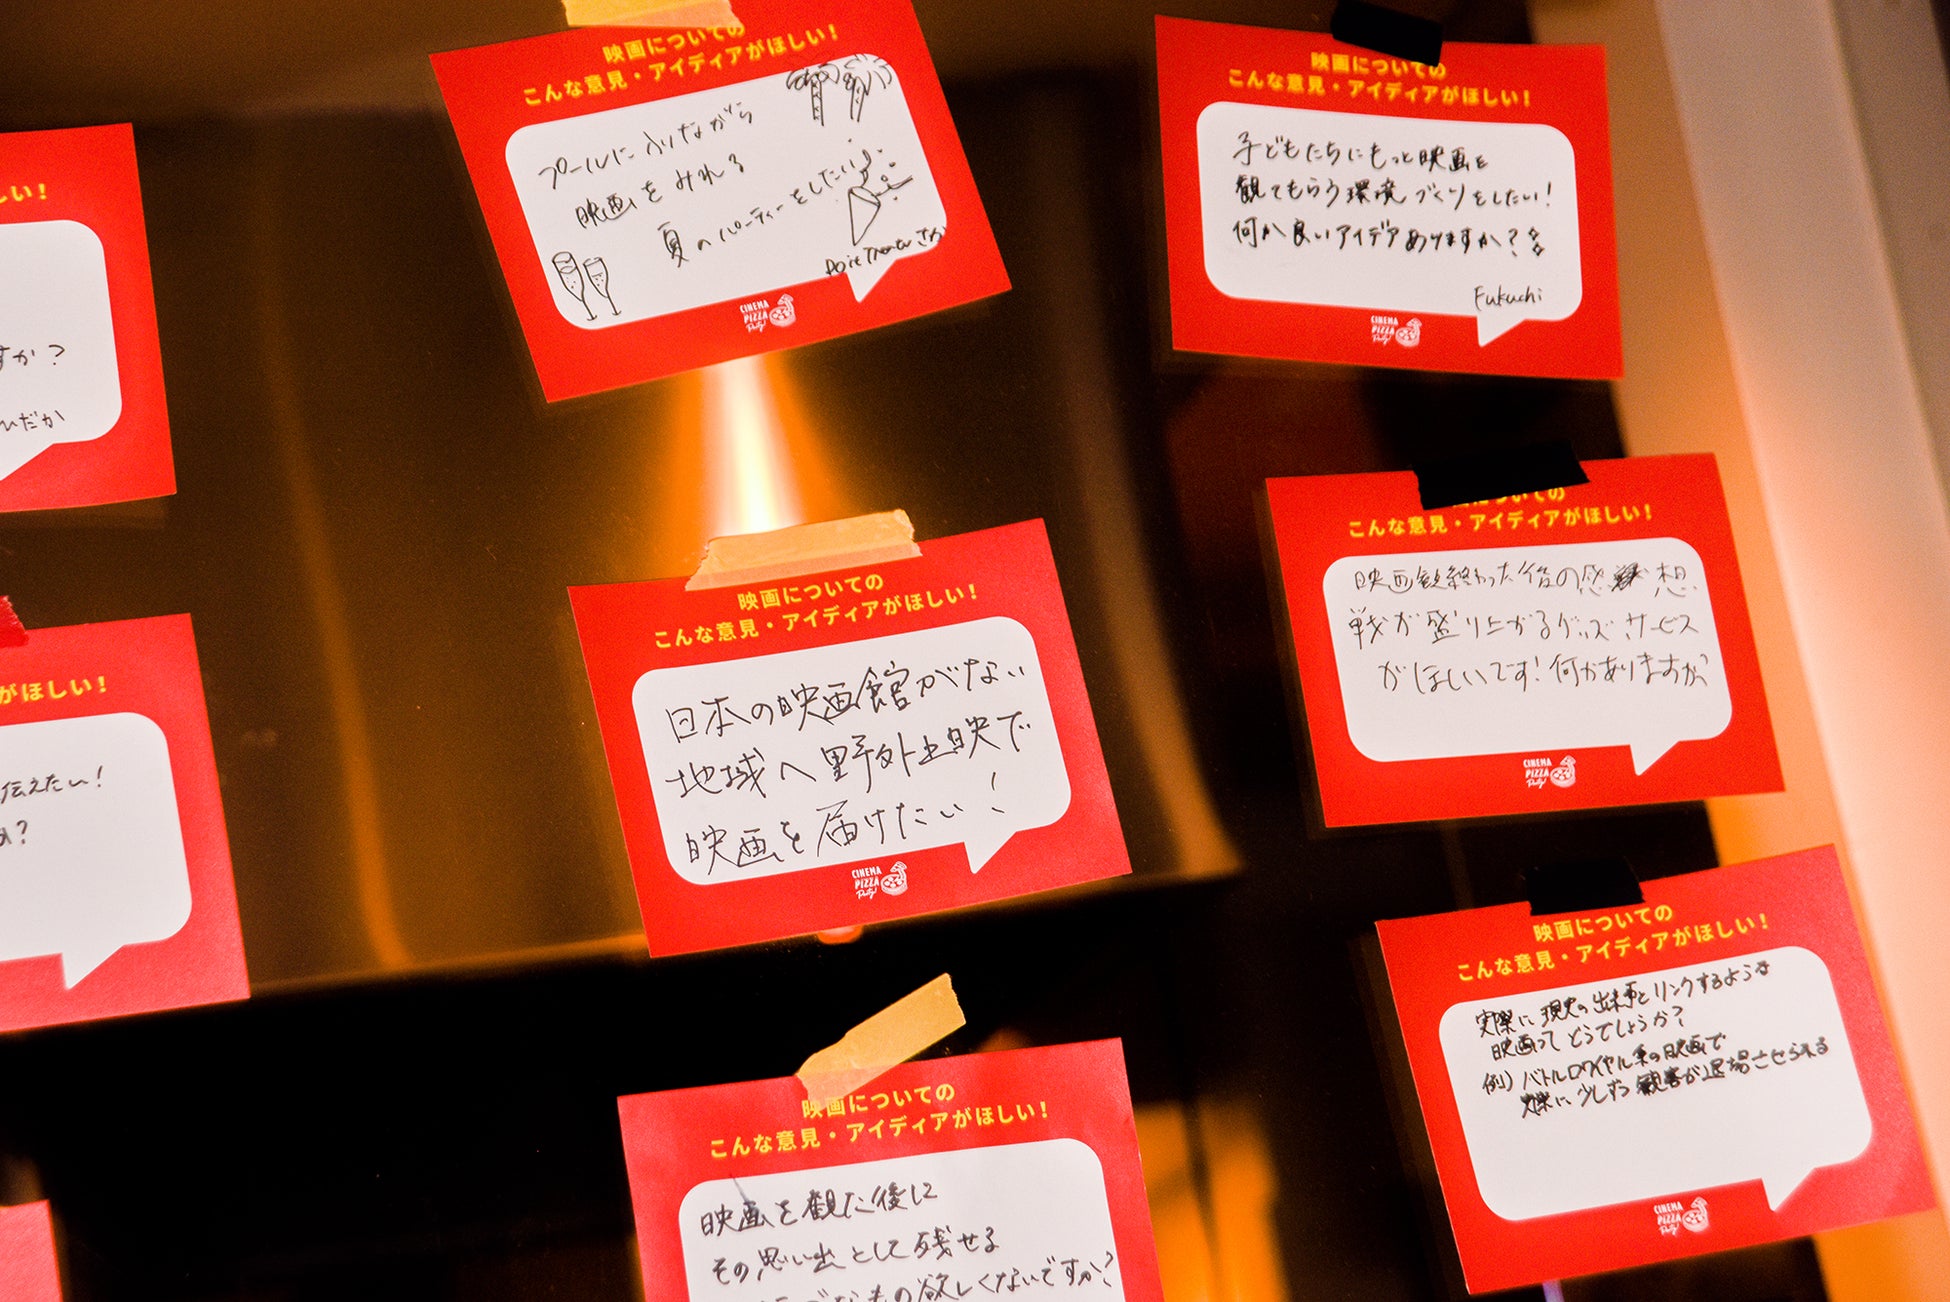 しい！
すか？
んだか
がほしい！
伝えたい！
か？
映画についての
こんな意見・アイディアがほしい！
プールに入りながら
映画をみれる
夏のパーティーをしたい
CINEMA
PIZZA
Party!
映画についての
こんな意見・アイディアがほしい！
子どもたちにもっと映画を
観てもらう環境づくりをしたい！
何か良いアイデアありますか？
Fukuchi
CINEMA
PIZZA
Party!
映画についての
こんな意見・アイディアがほしい！
日本の映画館がない
地域へ野外上映で
映画を届けたい！
CINEMA
PIZZA
Party!
ついての
こんな意見・アイディアがほしい！
映画観終わった後の感想
戦が盛り上がるグッズ、サービス
がほしいです！何かありますか？
CINEMA
PIZZA
Party!
映画についての
こんな意見・アイディアがほしい！
映画を観た後に
その思い出として残せる
なもの欲しくないですか？
映画についての
こんな意見・アイディアがほしい！
実際に現実の出来事とリンクするような
映画ってどうでしょうか？
例）バトルロワイヤル系の映画で
実際に少しずつ観客が退場させられる
CINEMA
PIZZA
Party!